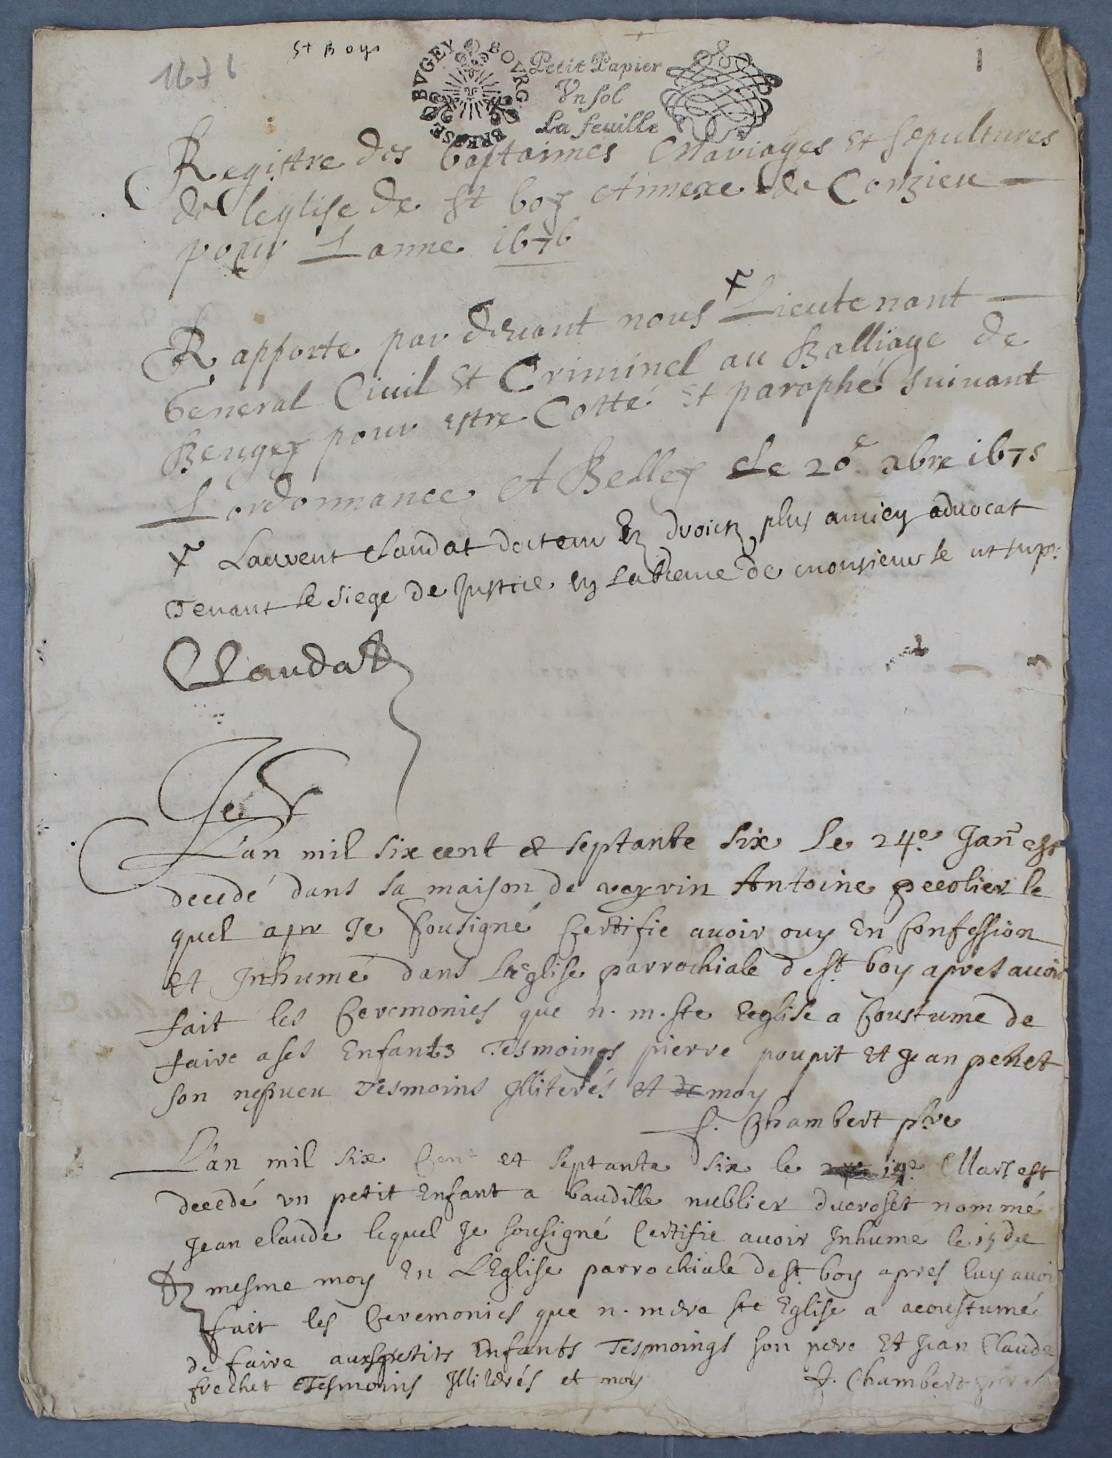 1676
St Boys
1
BVGEY BOVRG BRESSE
Petit Papier
Vn sol
La feuille
Registre des baptaimes Mariages et sepultures
de leglise de st boy Annexe de Conzieu
pour Lanne 1676
Rapporte par devant nous + Lieutenant
General Civil et Criminel au Balliage de
Beugey pour estre Cotté et paraphé suivant
Lordonnance A Belley Le 20e xbre 1675
+ Laurent Claudat docteur en droictz plus ancien advocat
Tenant le siege de Justice en labsence de monsieur le
Claudat
L'an mil six cent & septante six le 24e Jan est
decedé dans sa maison de veyrin Antoine le
quel Je sousigné Certifie avoir ouy En Confession
et Inhumé dans L'Eglise parrochiale de st boy apres avoir
fait les Ceremonies que n. m. ste Eeglise a Coustume de
faire a ses Enfants Tesmoings pierre poupit et Jean penet
son nepveu Tesmoins Illiterés et de moy
f. Chambert ptre
L'an mil six Cent et septante six le Mars est
decedé un petit Enfant a baudille nublier ducroset nommé
Jean claude lequel Je sousigné Certifie avoir Inhume le 15 du
mesme moy En L'Eglise parrochiale de st boy apres luy avoir
fait les Ceremonies que n. mere ste Eglise a acoustumé
de faire aux petits Enfants Tesmoings son pere et Jean Claude
frechet Tesmoins Illiterés et moy
f. Chambert